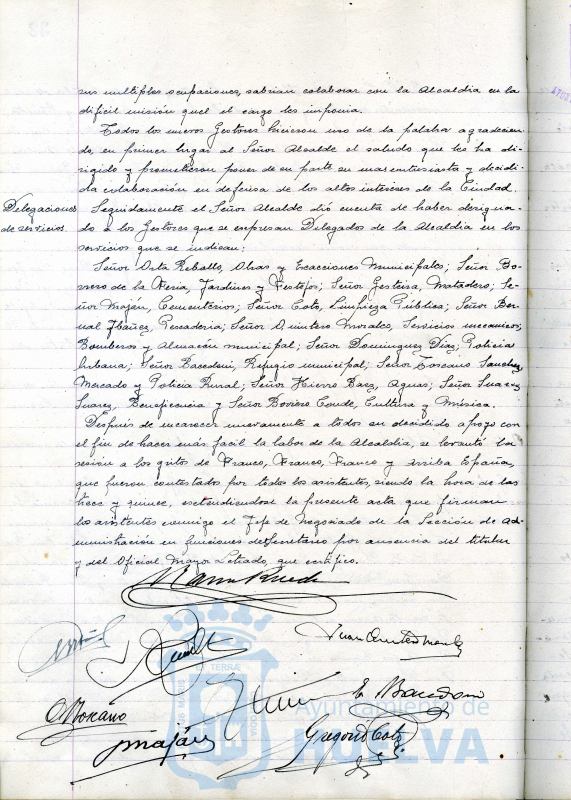 sus multiples ocupaciones, sabrian colaborar con la Alcaldia en la
dificil misión que el cargo les imponia.
Todos los nuevos Gestores hicieron uso de la palabra agradecien-
do, en primer lugar al Señor Alcalde el saludo que les ha di-
rigido y prometieron poner de su parte su mas entusiasta y decidi-
da colaboración en defensa de los altos intereses de la Ciudad.
Delegaciones
de servicios.
Seguidamente el Señor Alcalde dió cuenta de haber designa-
do a los Gestores que se expresan Delegados de la Alcaldia en los
servicios que se indican:
Señor Orta Rebollo, Obras y Exacciones Municipales; Señor Bo-
rrero de la Feria, Jardines y Festejos; Señor Gestisa, Matadero; Se-
ñor Maján, Cementerios; Señor Coto, Limpieza Pública; Señor Ber-
nal Ibañez, Pescaderia; Señor Quintero Morales, Servicios mecanicos,
Bomberos y Almacén municipal; Señor Dominguez Diaz, Policia
Urbana; Señor Bacedoni, Refugio municipal; Señor Toscano Sanchez,
Mercado y Policia Rural; Señor Hierro Baez, Aguas; Señor Suarez
Suarez, Beneficencia y Señor Rovira Conde, Cultura y Música.
Después de encarecer nuevamente a todos su decidido apoyo con
el fin de hacer más facil la labor de la Alcaldia, se levantó la
sesión a los gritos de Franco, Franco, Franco y Arriba España,
que fueron contestados por todos los asistentes, siendo la hora de las
trece y quince, extendiendose la presente acta que firman
los asistentes conmigo el Jefe de Negociado de la Sección de Ad-
ministración en funciones de Secretario por ausencia del titular
y del Oficial Mayor Letrado, que certifico.
Juan Quintero Morales
E. Bacedoni
O. Toscano
Maján
Gregorio Coto
Ayuntamiento de
HUELVA